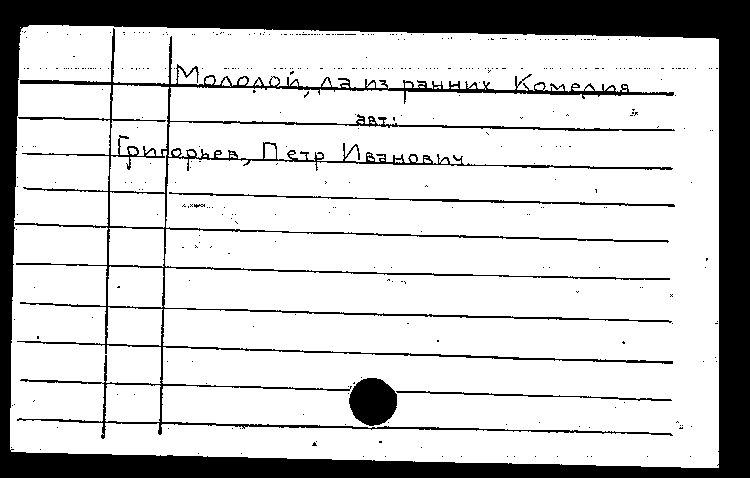 Молодой, да из ранних Комедия
авт.:
Григорьев, Петр Иванович.